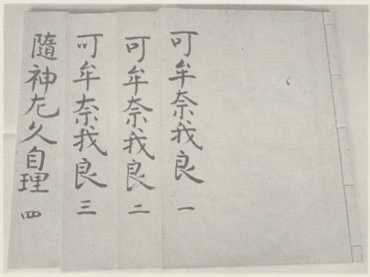 可牟奈我良 一
可牟奈我良 二
可牟奈我良 三
隨神左久自理 四